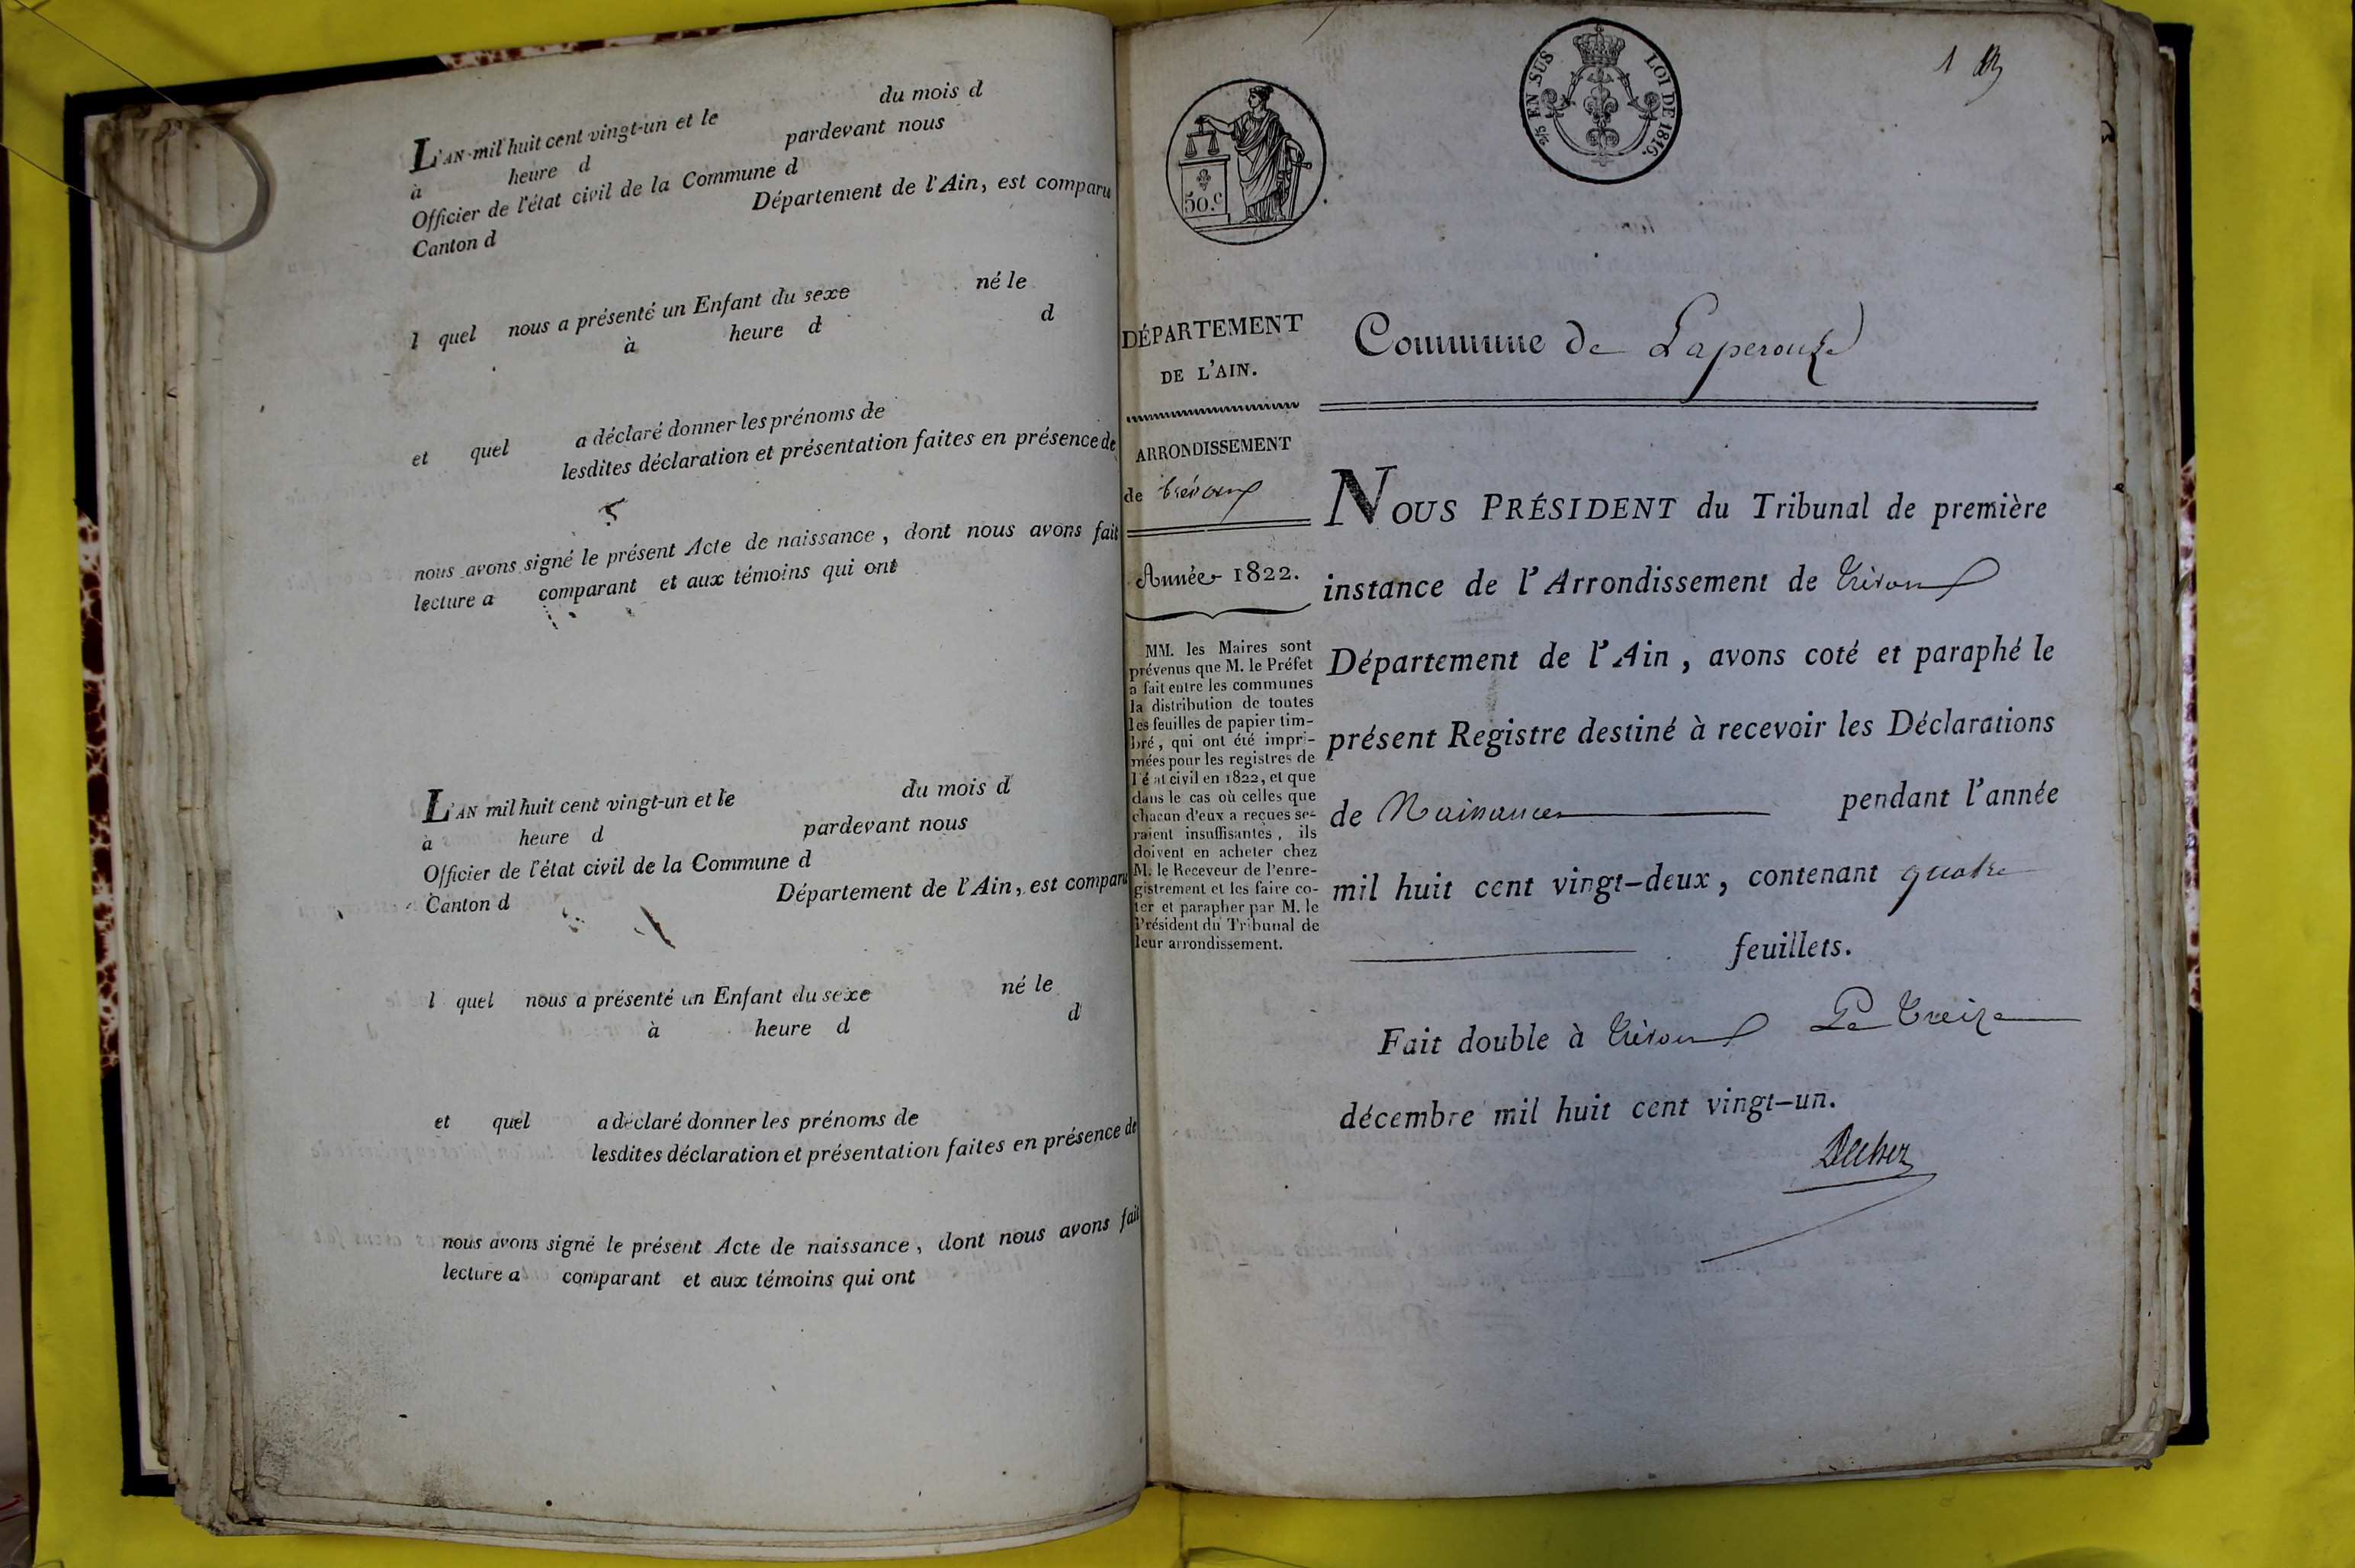 L'AN mil huit cent vingt-un et le du mois d
à heure d pardevant nous
Officier de l'état civil de la Commune d
Canton d Département de l'Ain, est comparu
l quel nous a présenté un Enfant du sexe né le
à heure d d
et quel a déclaré donner les prénoms de
lesdites déclaration et présentation faites en présence de
nous avons signé le présent Acte de naissance, dont nous avons fait
lecture a comparant et aux témoins qui ont
L'AN mil huit cent vingt-un et le du mois d
à heure d pardevant nous
Officier de l'état civil de la Commune d
Canton d Département de l'Ain, est comparu
l quel nous a présenté un Enfant du sexe né le
à heure d d
et quel a déclaré donner les prénoms de
lesdites déclaration et présentation faites en présence de
nous avons signé le présent Acte de naissance, dont nous avons fait
lecture a comparant et aux témoins qui ont
50.c
2/5 EN SUS LOI DE 1816.
1
DÉPARTEMENT
DE L'AIN.
ARRONDISSEMENT
de trévoux
Année 1822.
MM. les Maires sont
prévenus que M. le Préfet
a fait entre les communes
la distribution de toutes
les feuilles de papier tim-
bré, qui ont été impri-
mées pour les registres de
l'état civil en 1822, et que
dans le cas où celles que
chacun d'eux a reçues se-
raient insuffisantes, ils
doivent en acheter chez
M. le Receveur de l'enre-
gistrement et les faire co-
ter et parapher par M. le
Président du Tribunal de
leur arrondissement.
Commune de Laperouze
NOUS PRÉSIDENT du Tribunal de première
instance de l'Arrondissement de Trévoux
Département de l'Ain, avons coté et paraphé le
présent Registre destiné à recevoir les Déclarations
de Naissances pendant l'année
mil huit cent vingt-deux, contenant quatre
feuillets.
Fait double à Trévoux Le Treize
décembre mil huit cent vingt-un.